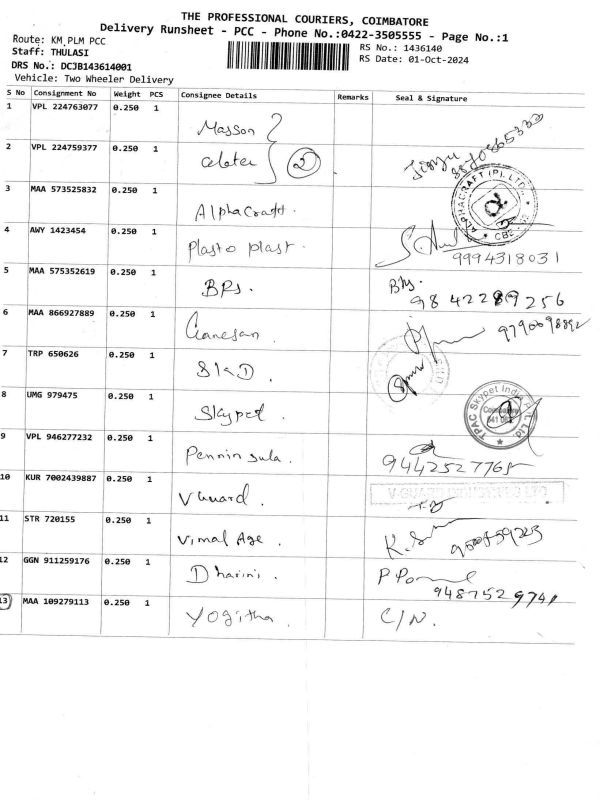 THE PROFESSIONAL COURIERS, COIMBATORE
Delivery Runsheet - PCC - Phone No.:0422-3505555 - Page No.:1
Route: KM_PLM PCC
RS No.: 1436140
Staff: THULASI
RS Date: 01-Oct-2024
DRS No.: DCJB143614001
Vehicle: Two Wheeler Delivery
S No Consignment No Weight PCS Consignee Details Remarks Seal & Signature
1 VPL 224763077 0.250 1 Masson
2 VPL 224759377 0.250 1 2
3 MAA 573525832 0.250 1 Alphacraft. ALPHACRAFT (P) LTD. CBE
4 AWY 1423454 0.250 1 Plasto plast. 9994318031
5 MAA 575352619 0.250 1 BPs. 9842289256
6 MAA 866927889 0.250 1 Ganesan
7 TRP 650626 0.250 1 SKD.
8 UMG 979475 0.250 1 Skypet. TPAC Skypet India P Ltd
9 VPL 946277232 0.250 1 Penninsula.
10 KUR 7002439887 0.250 1 VGuard.
11 STR 720155 0.250 1 Vimal Age.
12 GGN 911259176 0.250 1 Dharini.
13 MAA 109279113 0.250 1 Yogitha. C/N.